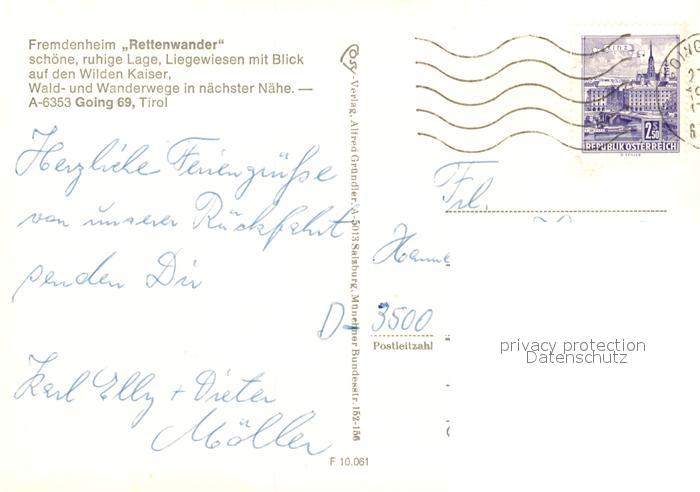 Fremdenheim „Rettenwander“
schöne, ruhige Lage, Liegewiesen mit Blick
auf den Wilden Kaiser,
Wald- und Wanderwege in nächster Nähe. —
A-6353 Going 69, Tirol
Herzliche Feriengrüße
von unserer Rückfahrt
senden Dir
Karl Elly + Dieter
Möller
Cosy-Verlag, Alfred Gründler, A-5013 Salzburg, Münchner Bundesstr. 152-156
F 10.061
LINZ
2.50
REPUBLIK ÖSTERREICH
GOING
Frl.
Hanne
D- 3500
Postleitzahl
privacy protection
Datenschutz